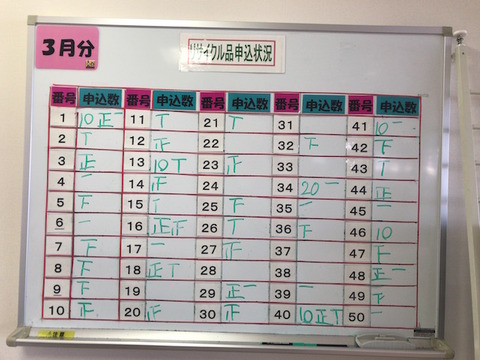 3月分
リサイクル品申込状況
番号 申込数 番号 申込数 番号 申込数 番号 申込数 番号 申込数
1 10正一 11 T 21 T 31 41 10一
2 T 12 正 22 32 下 42 下
3 正 13 10T 23 正 33 43 T
4 一 14 正 24 34 20一 44 正
5 下 15 T 25 下 35 一 45 一
6 一 16 正正 26 T 36 下 46 10
7 下 17 一 27 正 37 47 下
8 下 18 正T 28 38 48 正一
9 下 19 29 正一 39 一 49 下
10 正 20 下 30 正 40 10正T 50 一